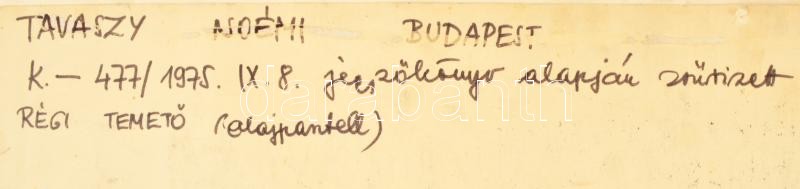 TAVASZY NOÉMI BUDAPEST
K. – 477/1975. IX. 8. jegyzőkönyv alapján zsűrizett
RÉGI TEMETŐ (olajpasztell)
darabanth